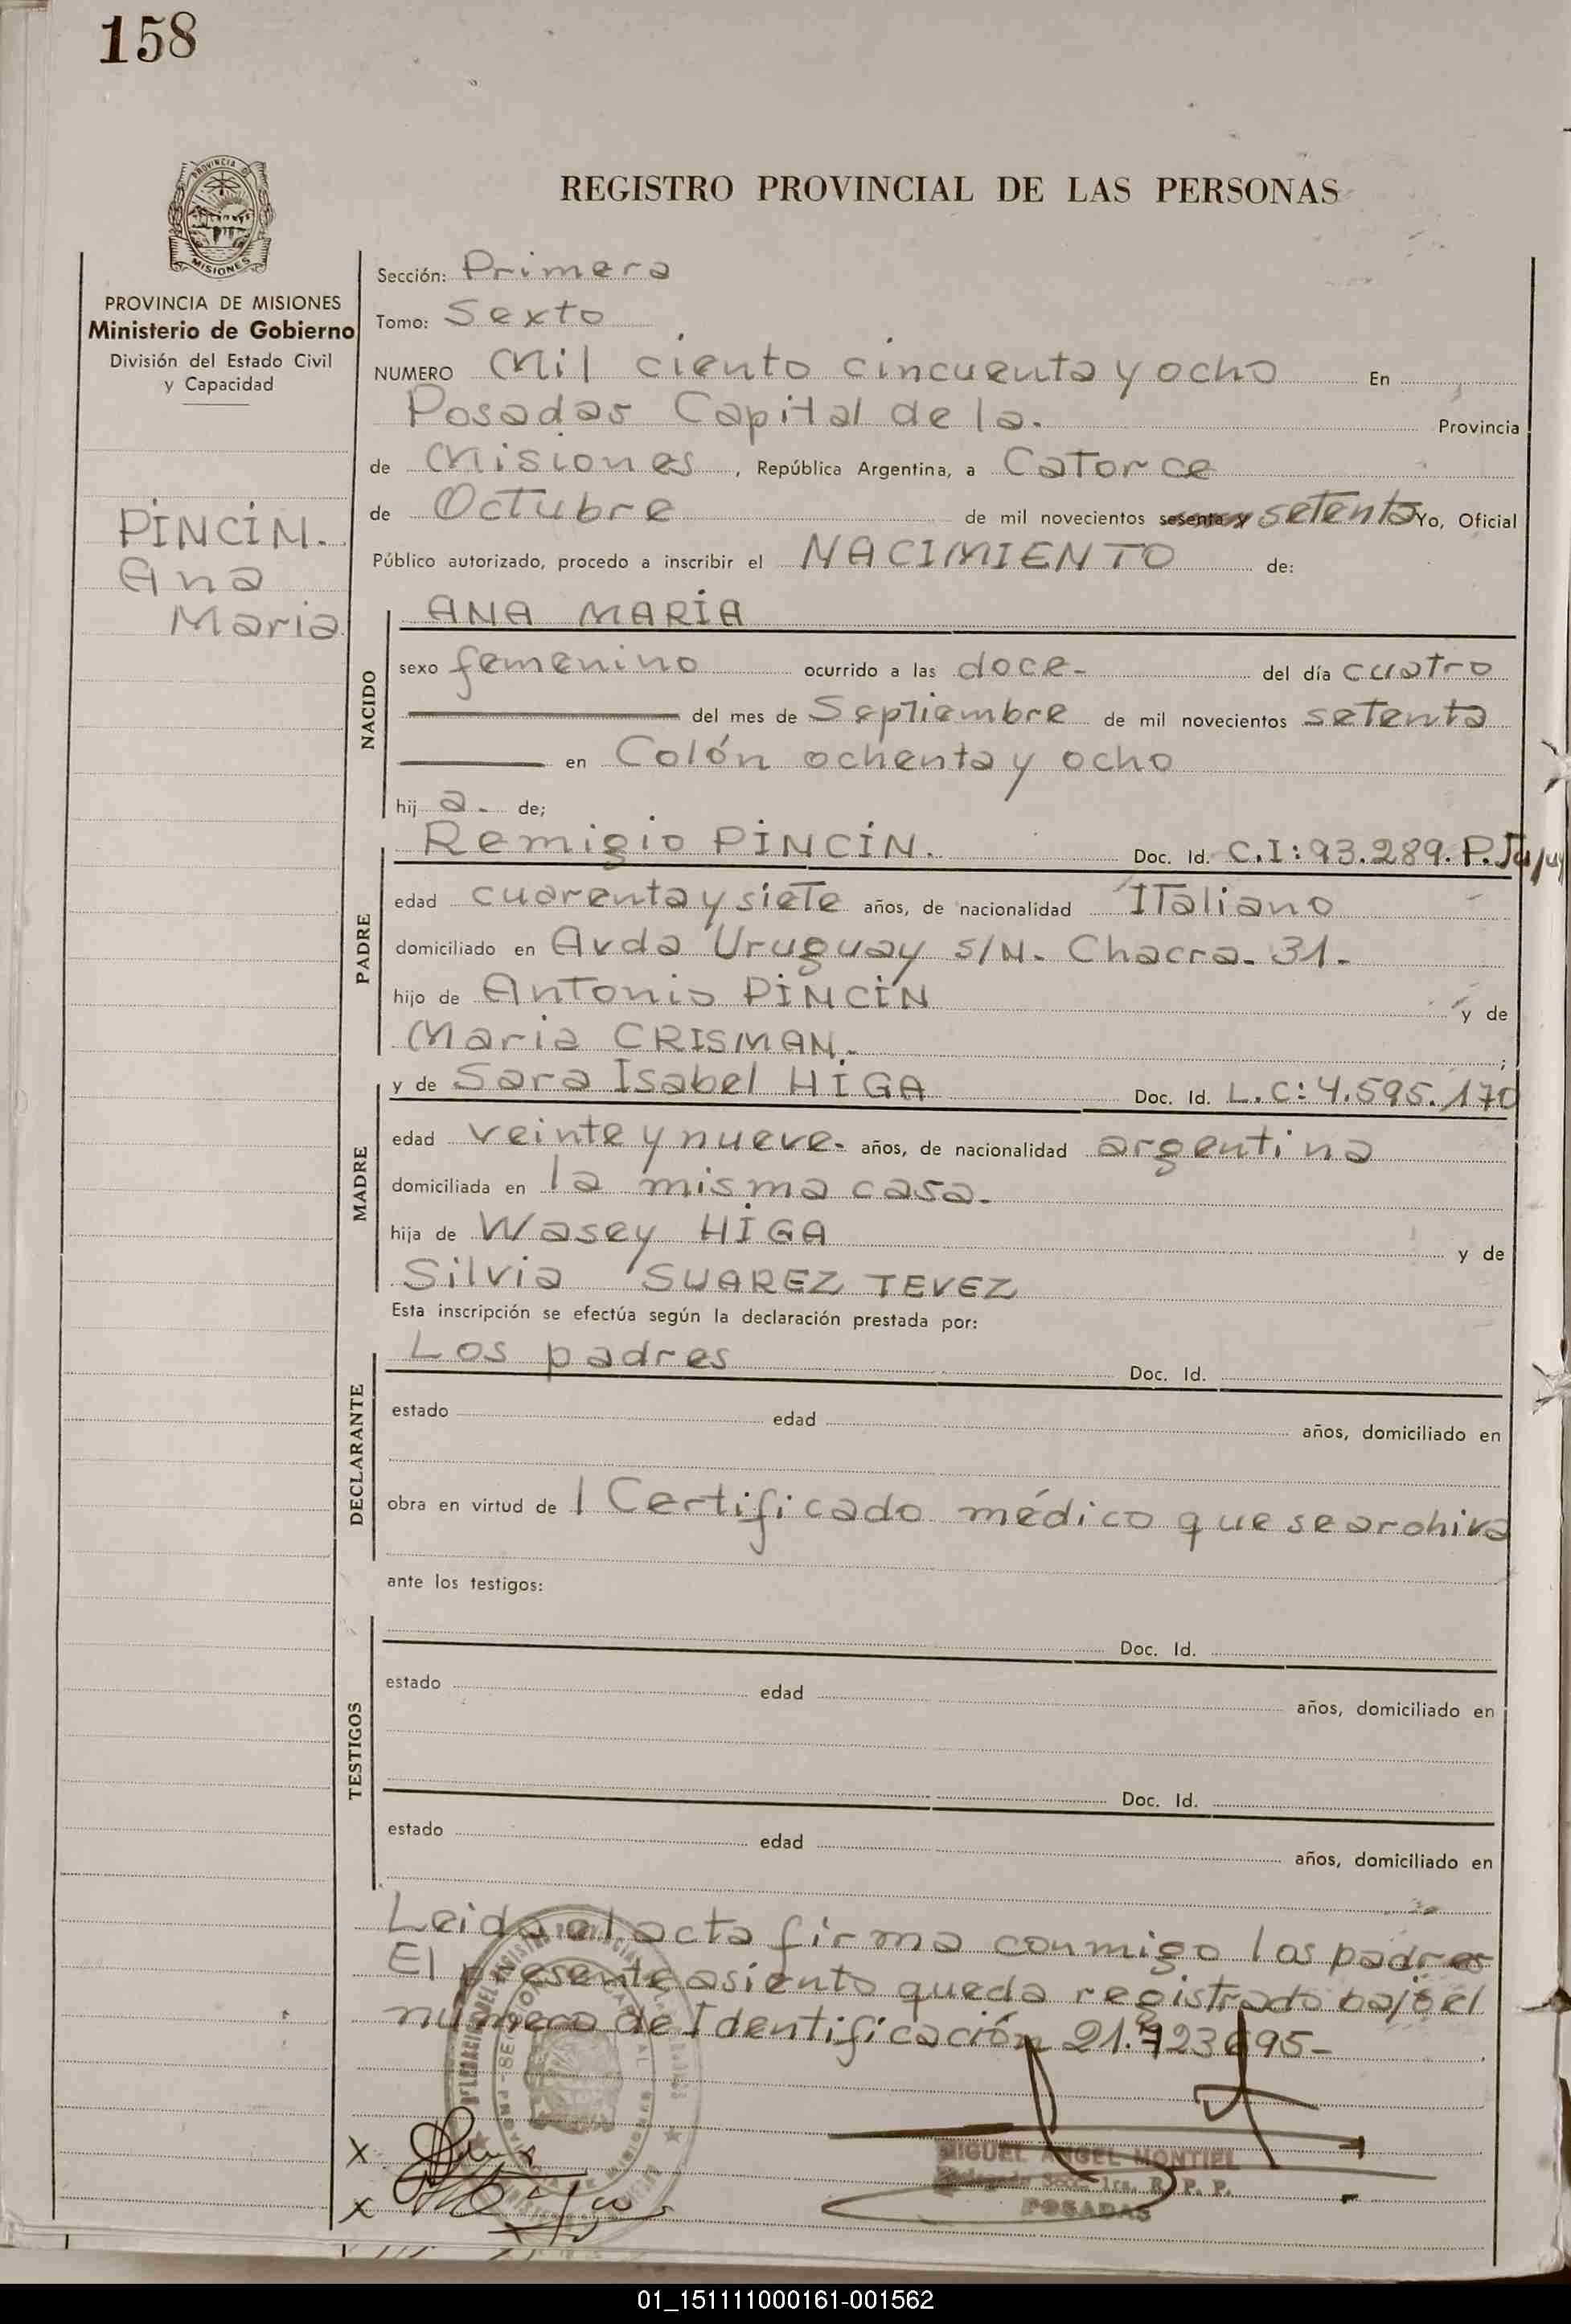 158
PROVINCIA DE
MISIONES
REGISTRO PROVINCIAL DE LAS PERSONAS
PROVINCIA DE MISIONES
Ministerio de Gobierno
División del Estado Civil
y Capacidad
PINCIN.
Ana
Maria
Sección: Primera
Tomo: Sexto
NUMERO Mil ciento cincuenta y ocho En
Posadas Capital de la. Provincia
de Misiones, República Argentina, a Catorce
de Octubre de mil novecientos sesenta y setenta Yo, Oficial
Público autorizado, procedo a inscribir el NACIMIENTO de:
NACIDO
ANA MARIA
sexo femenino ocurrido a las doce- del día cuatro
del mes de Septiembre de mil novecientos setenta
en Colón ochenta y ocho
hij a- de;
PADRE
Remigio PINCIN. Doc. Id. C.I: 93.289. P. Jujuy
edad cuarenta y siete años, de nacionalidad ITaliano
domiciliado en Avda Uruguay S/N- Chacra- 31-
hijo de Antonio PINCIN y de
Maria CRISMAN.- ;
MADRE
y de Sara Isabel HIGA Doc. Id. L.C: 4.595.170
edad veinte y nueve- años, de nacionalidad argentina
domiciliada en la misma casa-
hija de Wasey HIGA y de
Silvia SUAREZ TEVEZ
Esta inscripción se efectúa según la declaración prestada por:
DECLARANTE
Los padres Doc. Id.
estado edad años, domiciliado en
obra en virtud de 1 Certificado médico que se archiva
ante los testigos:
TESTIGOS
Doc. Id.
estado edad años, domiciliado en
Doc. Id.
estado edad años, domiciliado en
Leida el acta firma conmigo los padres
El presente asiento queda registrado bajo el
número de Identificación 21.723695-
X
X
MIGUEL ANGEL MONTIEL
R. P. P.
POSADAS
01_151111000161-001562